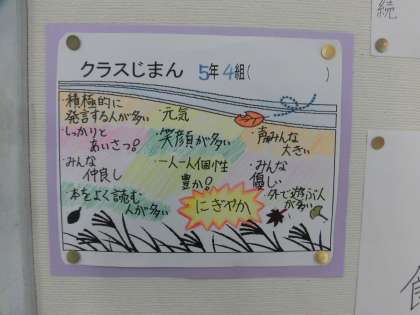 クラスじまん 5年4組( )
・積極的に
発言する人が多い
・しっかりと
あいさつ!
・みんな
仲良し
・本をよく読む
人が多い
・元気
・笑顔が多い
・一人一人個性
豊か!
にぎやか
・声みんな
大きい
・みんな
優しい
・外で遊ぶ人
が多い
続